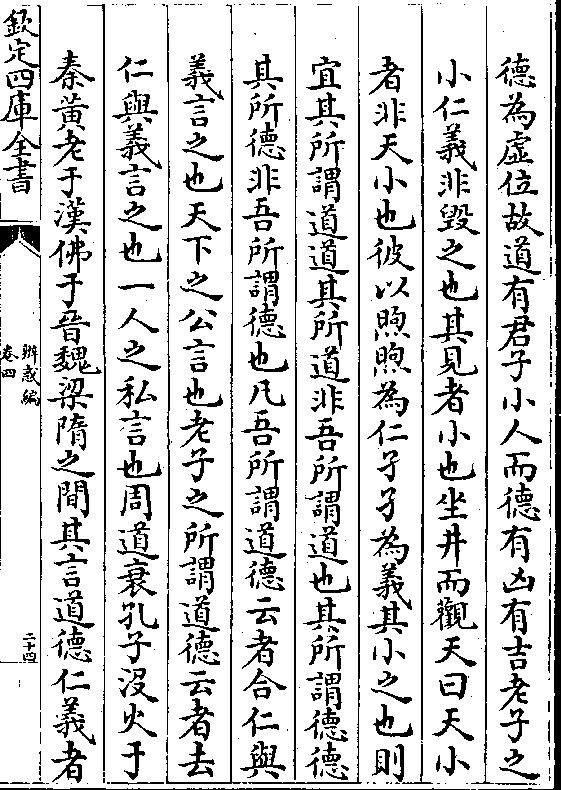 德為虛位故道有君子小人而德有凶有吉老子之
小仁義非毀之也其見者小也坐井而觀天曰天小
者非天小也彼以煦煦為仁孑孑為義其小之也則
宜其所謂道道其所道非吾所謂道也其所謂德德
其所德非吾所謂德也凡吾所謂道德云者合仁與
義言之也天下之公言也老子之所謂道德云者去
仁與義言之也一人之私言也周道衰孔子沒火于
秦黃老于漢佛于晉魏梁隋之間其言道德仁義者
欽定四庫全書
辨惑編
卷四
二十四